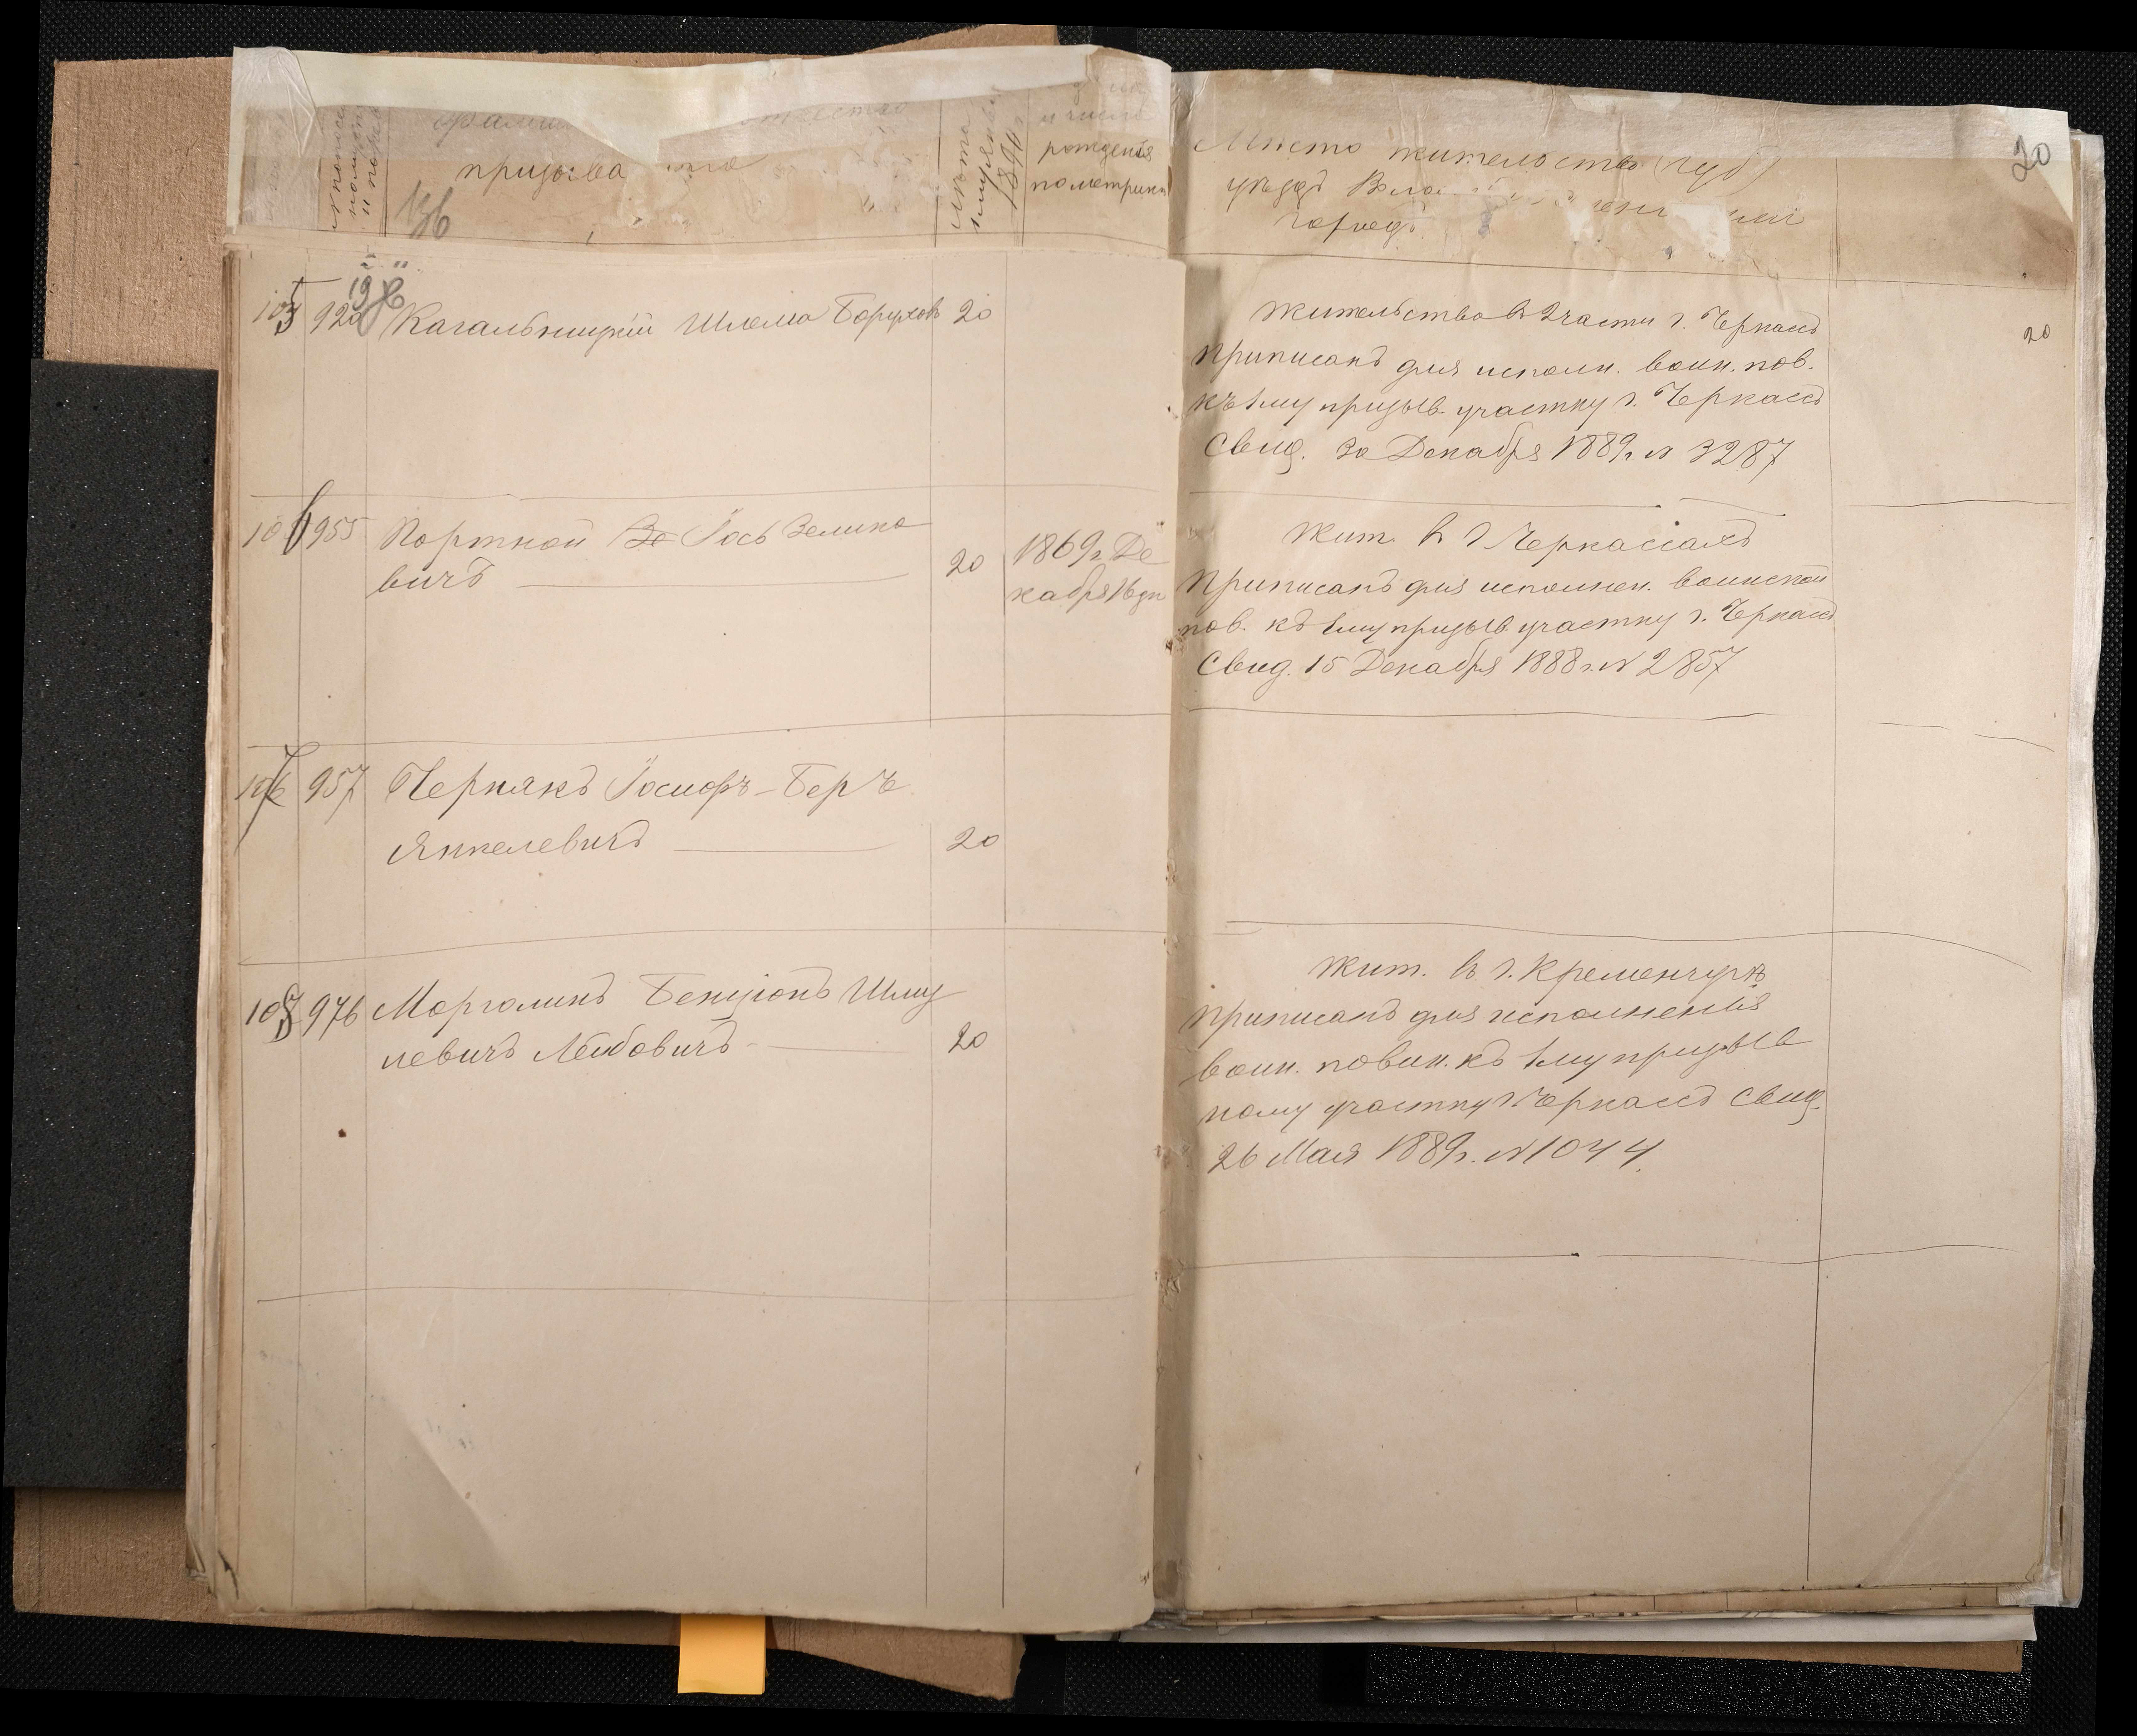 призыва
Лѣта
1му Января
1890 г.
и число
рожденія
по метрикѣ
Мѣсто жительства (губ)
уѣздъ
городъ
20
105 920 Кагальницкій Шлема Боруховъ 20
Жительство в 2 части г. Черкассъ
приписанъ для исполн. воин. пов.
къ 1му призыв. участку г. Черкассъ
Свид. 30 Декабря 1889 г. № 3287
20
106 955 Портной Іось Зелико
вичъ 20
1869 г. Де
кабря 16 дн
жит. в г. Черкассахъ
приписанъ для исполнен. воинской
пов. къ 1му призыв. участку г. Черкассъ
Свид. 15 Декабря 1888 г. № 2857
107 957 Чернякъ Іосифъ-Беръ
Янкелевичъ 20
108 976 Моргалинъ Бенціонъ Шму
левичъ Лейбовичъ 20
жит. в г. Кременчугѣ
приписанъ для исполненія
воин. повин. къ 1му призыв
ному участку г. Черкассъ Свид.
26 Мая 1889 г. № 1044.